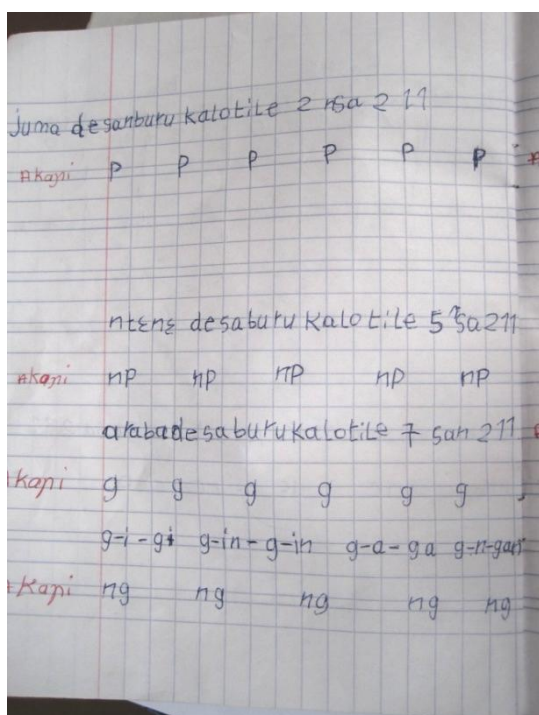 juma desanburu kalotile 2 nsa 211
Akaɲi p p p p p p
ntɛnɛ desaburu kalotile 5 sa 211
Akaɲi np np np np np
arabadesaburukalotile 7 san 211
Kaɲi g g g g g g
g-i-gi g-in-g-in g-a-ga g-n-gan
Kaɲi ng ng ng ng ng